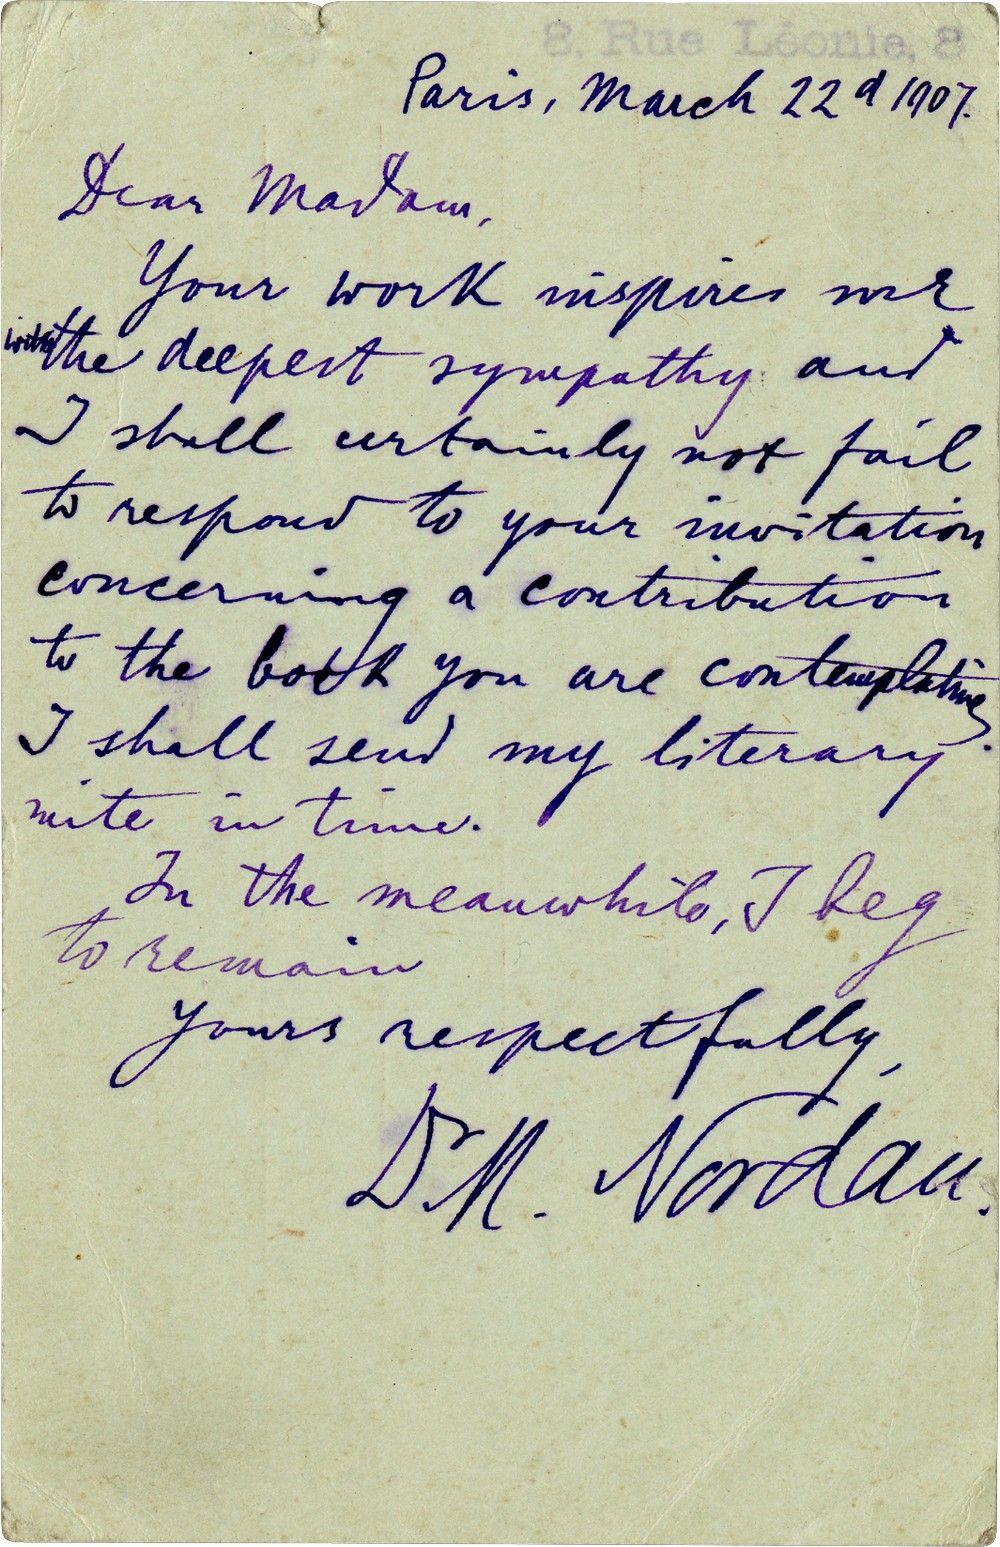 8, Rue Léonie, 8
Paris, March 22d 1907.
Dear Madam,
Your work inspires me
with the deepest sympathy and
I shall certainly not fail
to respond to your invitation
concerning a contribution
to the book you are contemplating.
I shall send my literary
mite in time.
In the meanwhile, I beg
to remain
Yours respectfully,
Dr M. Nordau.